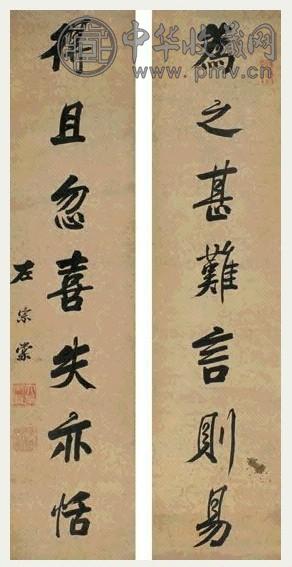 中华收藏网
www.pmv.cn
為之甚難言則易
得且忽喜失亦恬
左宗棠